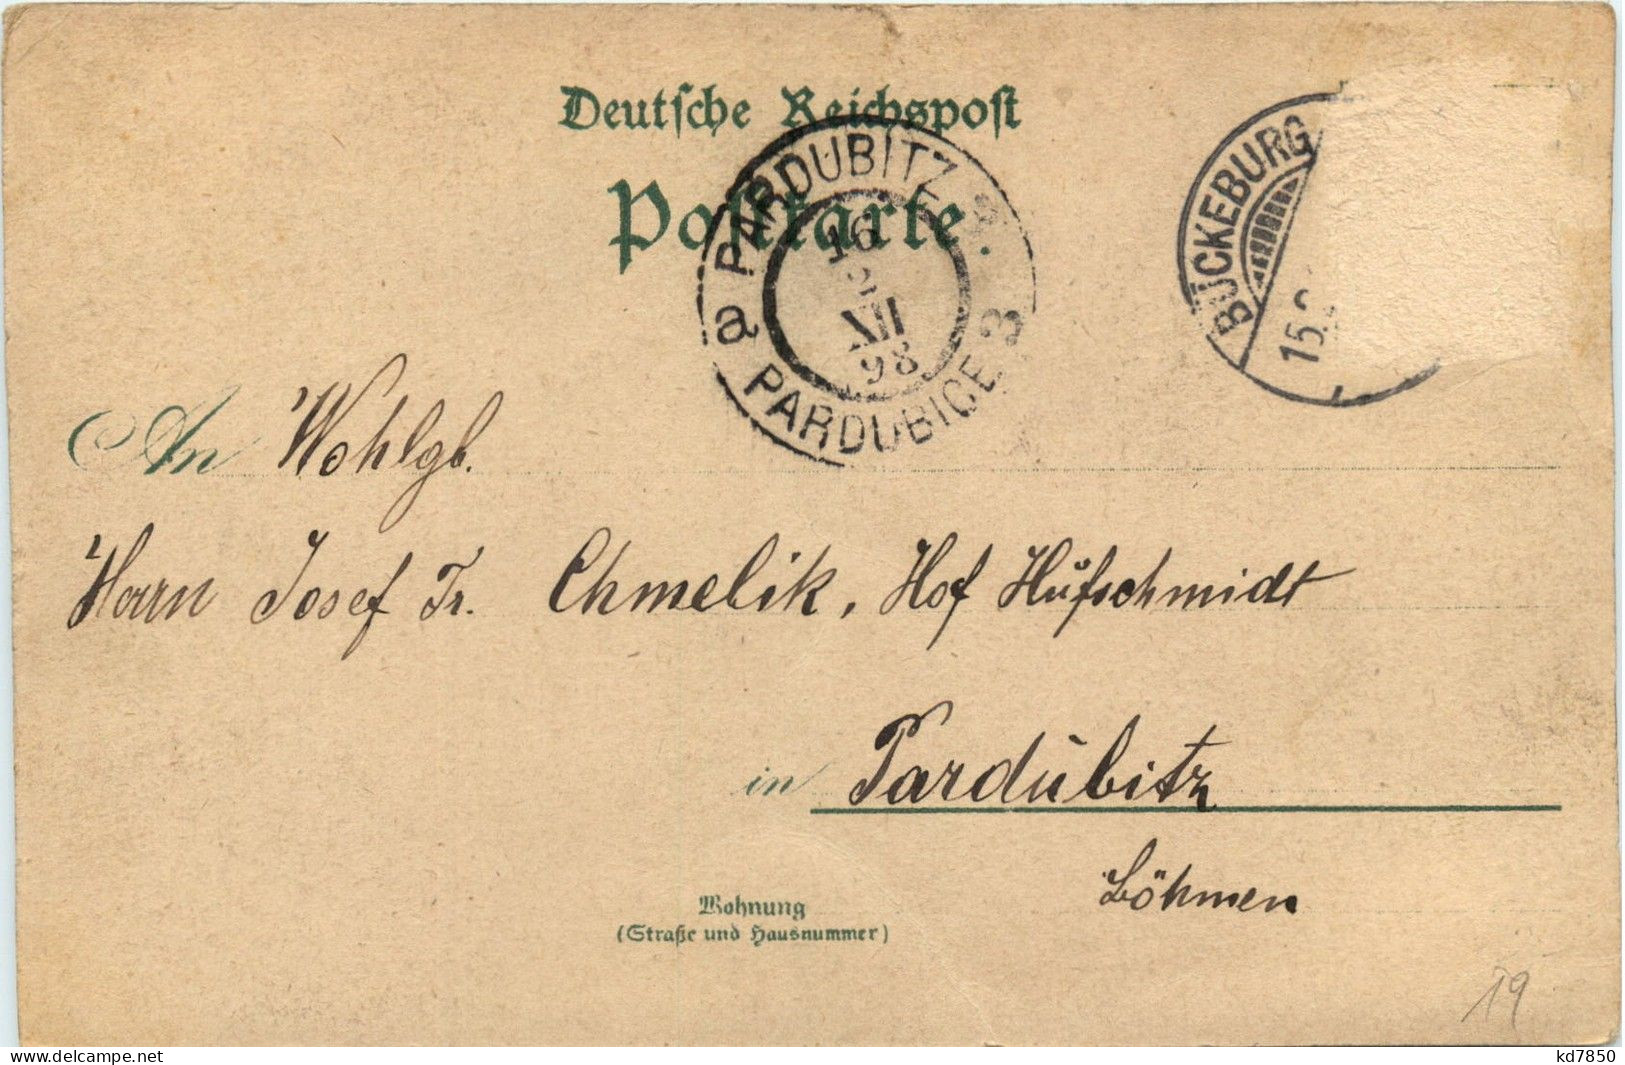 Deutsche Reichspost
Postkarte.
PARDUBITZ
a
16
XII
98
3
PARDUBICE
BÜCKEBURG
15.
An Wohlgb.
Herrn Josef Fr. Chmelik, Hof Hufschmidt
in Pardubitz
Böhmen
Wohnung
(Straße und Hausnummer)
19
www.delcampe.net
kd7850